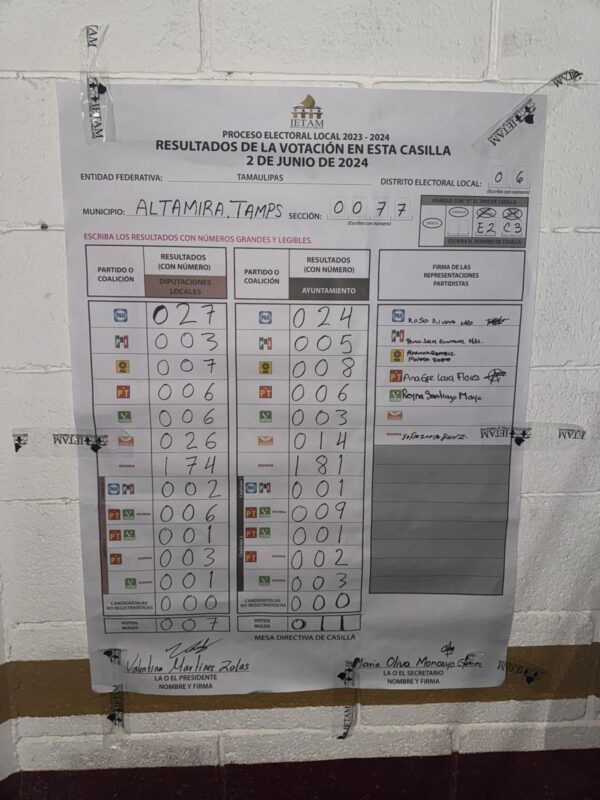 IETAM
IETAM
IETAM
IETAM
PROCESO ELECTORAL LOCAL 2023 - 2024
RESULTADOS DE LA VOTACIÓN EN ESTA CASILLA
2 DE JUNIO DE 2024
ENTIDAD FEDERATIVA: TAMAULIPAS DISTRITO ELECTORAL LOCAL: 0 6
(Escriba con número)
MUNICIPIO: ALTAMIRA, TAMPS SECCIÓN: 0 0 7 7
(Escriba con número)
MARQUE CON "X" EL TIPO DE CASILLA
E2 C3
ESCRIBA EL NÚMERO DE CASILLA
ESCRIBA LOS RESULTADOS CON NÚMEROS GRANDES Y LEGIBLES.
PARTIDO O COALICIÓN RESULTADOS (CON NÚMERO) DIPUTACIONES LOCALES PARTIDO O COALICIÓN RESULTADOS (CON NÚMERO) AYUNTAMIENTO FIRMA DE LAS REPRESENTACIONES PARTIDISTAS
PAN 0 2 7 PAN 0 2 4 PAN
PRI 0 0 3 PRI 0 0 5 PRI
PRD 0 0 7 PRD 0 0 8 PRD
PT 0 0 6 PT 0 0 6 PT Ana Lara Flores
VERDE 0 0 6 VERDE 0 0 3 VERDE Reyna Santiago Maya
0 2 6 0 1 4
morena 1 7 4 morena 1 8 1 morena
PAN PRI 0 0 2 PAN PRI 0 0 1
PT VERDE morena 0 0 6 PT VERDE morena 0 0 9
PT VERDE 0 0 1 PT VERDE 0 0 1
PT morena 0 0 3 PT morena 0 0 2
VERDE morena 0 0 1 VERDE morena 0 0 3
CANDIDATOS/AS NO REGISTRADOS/AS 0 0 0 CANDIDATOS/AS NO REGISTRADOS/AS 0 0 0
VOTOS NULOS 0 0 7 VOTOS NULOS 0 1 1
MESA DIRECTIVA DE CASILLA
Valentina Martinez Zolas Maria Oliva Moncayo Gómez
LA O EL PRESIDENTE LA O EL SECRETARIO
NOMBRE Y FIRMA NOMBRE Y FIRMA
IETAM
IETAM
IETAM
IETAM